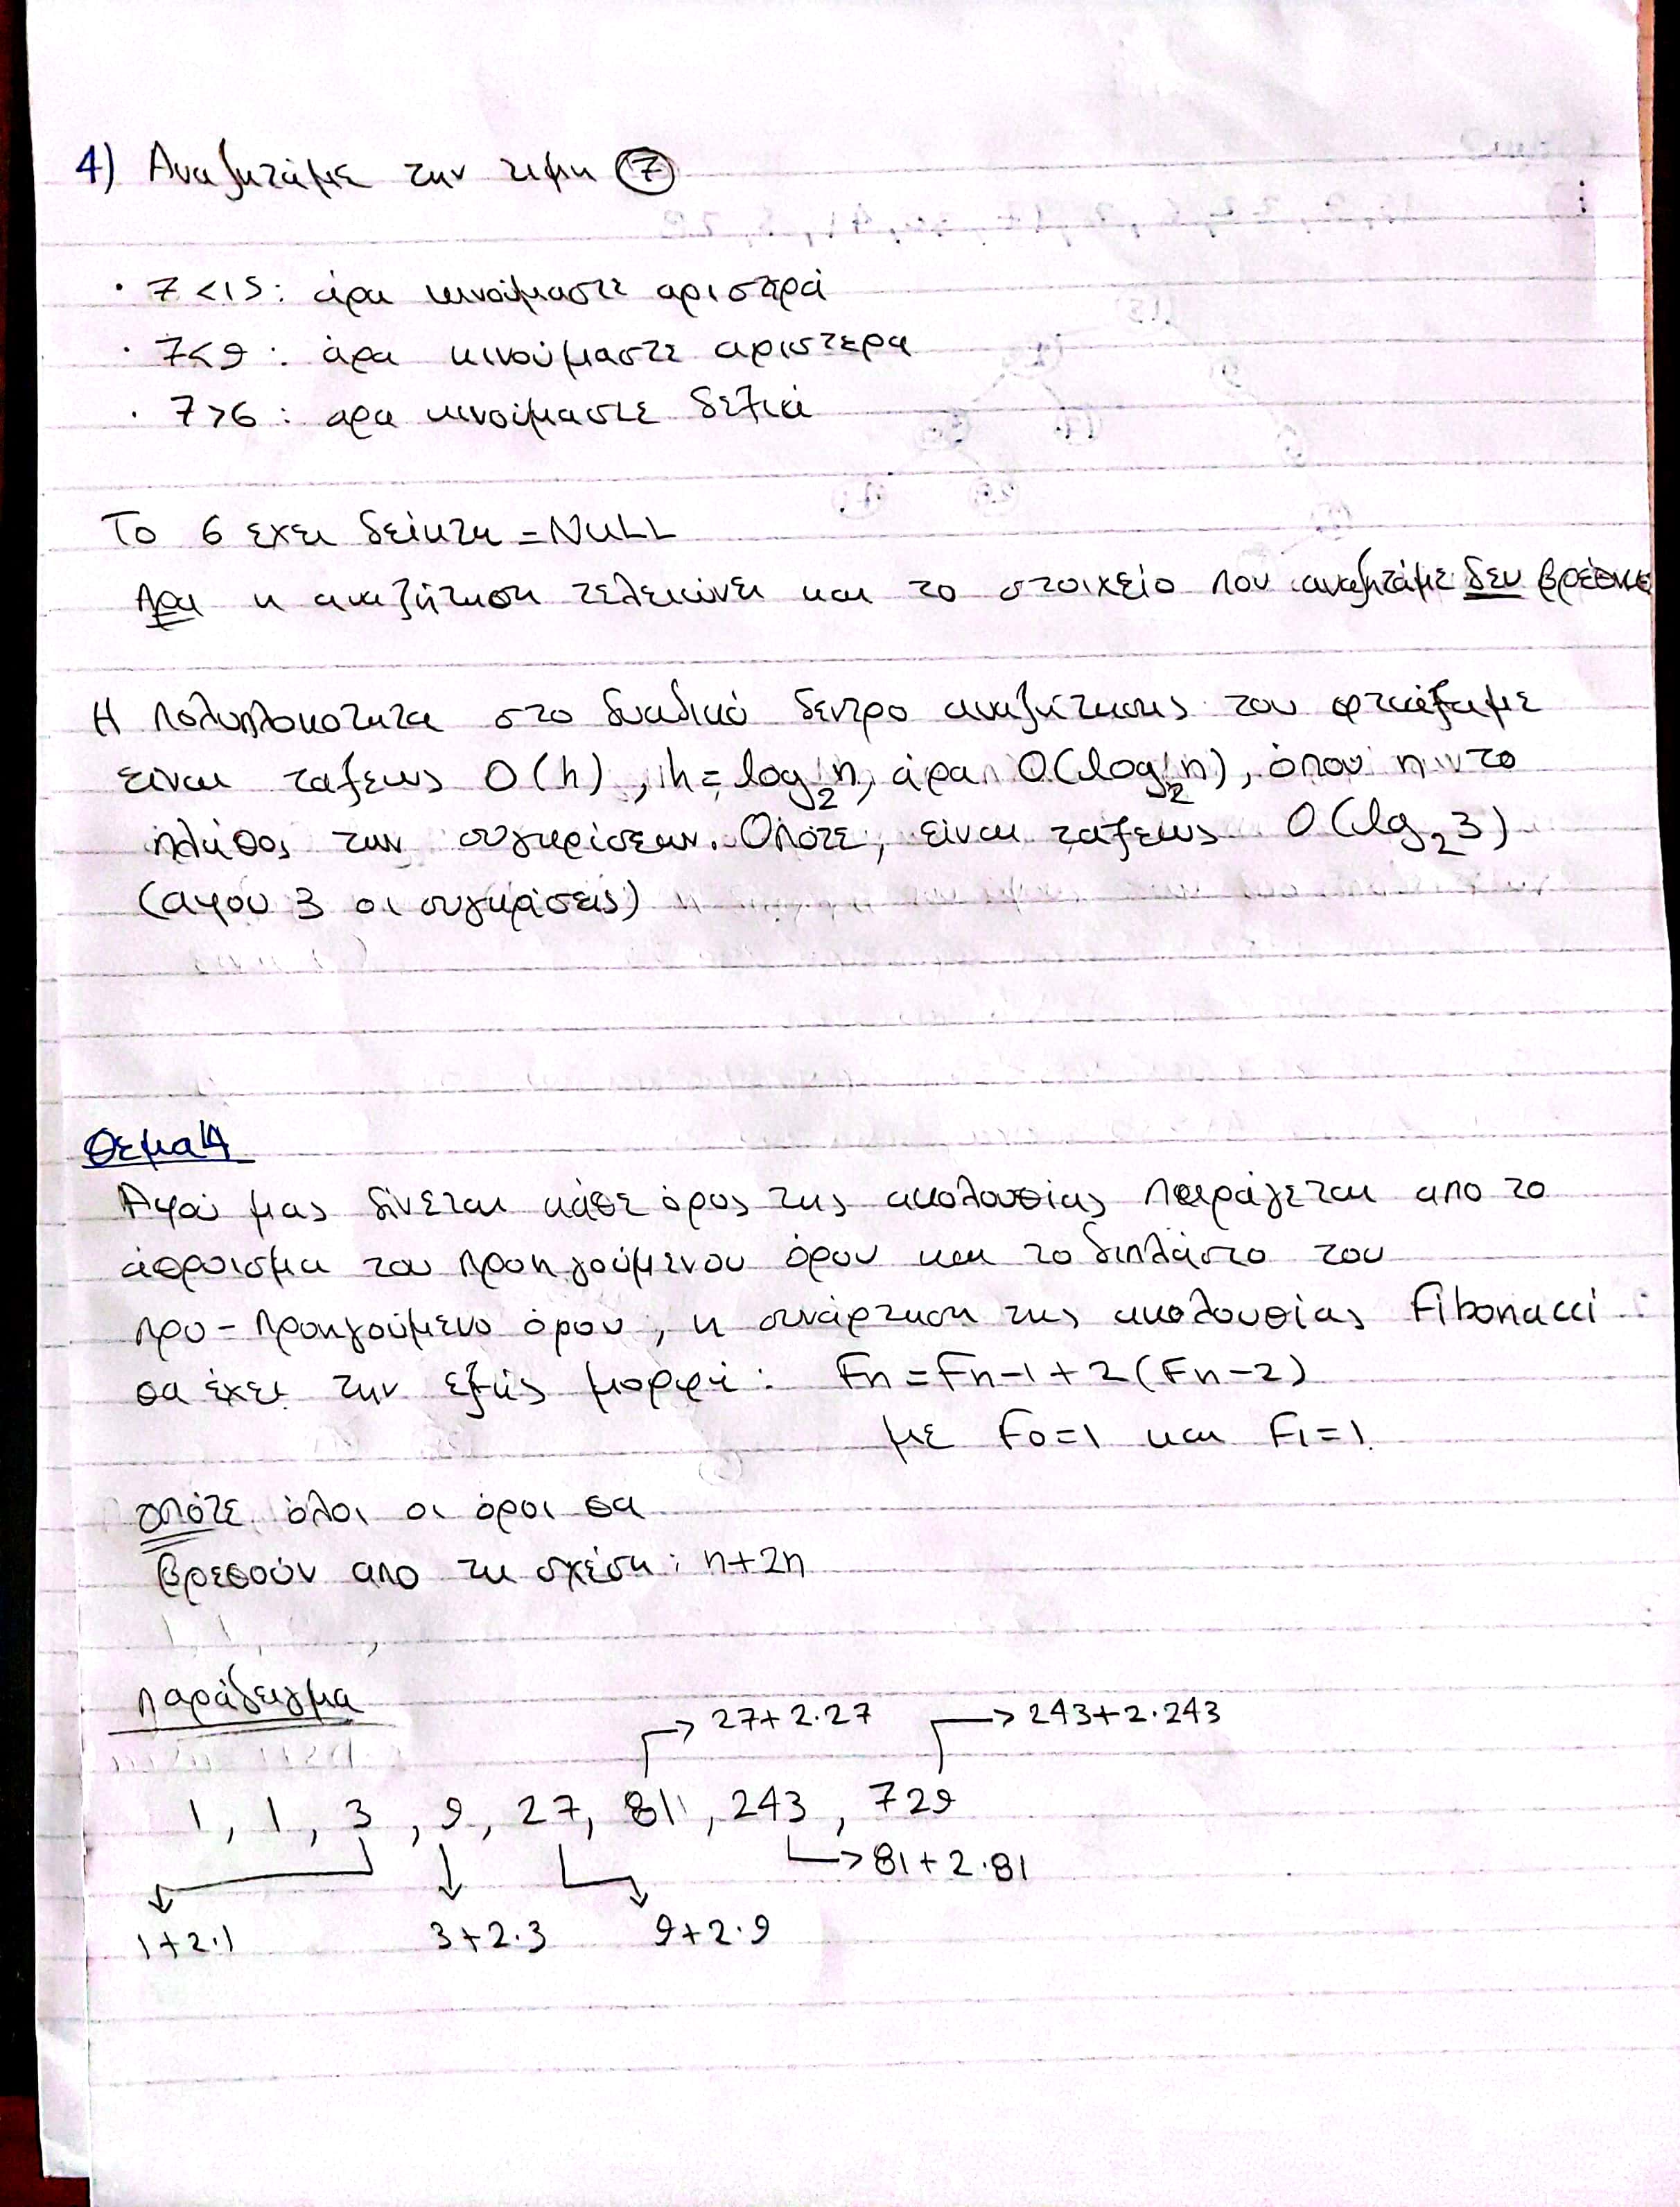 4) Αναζητάμε την τιμη 7
· 7<15: άρα κινούμαστε αριστερά
· 7<9: άρα κινούμαστε αριστερα
· 7>6: αρα κινούμαστε δεξιά
Το 6 εχει δείκτη = NULL
Αρα η αναζήτηση τελειώνει και το στοιχείο που αναζητάμε δεν
Η πολυπλοκοτητα στο δυαδικό δεντρο αναζήτησης που φτιάξαμε
είναι ταξεως O(h), h = log₂n, άρα O(log₂n), όπου n το
πλήθος των συγκρίσεων. Οπότε, είναι ταξεως O(lg₂3)
(αφου 3 οι συγκρίσεις)
Θεμα 4
Αφού μας δίνεται κάθε όρος της ακολουθίας παράγεται απο το
άθροισμα του προηγούμενου όρου και το διπλάσιο του
προ-προηγούμενο όρου, η συνάρτηση της ακολουθίας Fibonacci
θα έχει την εξής μορφή: Fn=Fn-1+2(Fn-2)
με F0=1 και F1=1.
οπότε όλοι οι όροι θα
βρεθούν απο τη σχέση: n+2n
παράδειγμα
27+2·27 243+2·243
1, 1, 3, 9, 27, 81, 243, 729
81+2·81
1+2·1 3+2·3 9+2·9